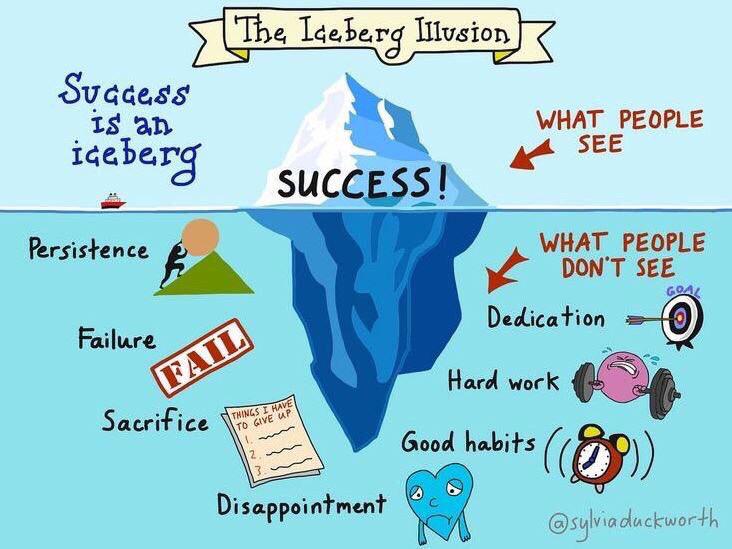 The Iceberg Illusion
Success
is an
iceberg
WHAT PEOPLE
SEE
SUCCESS!
WHAT PEOPLE
DON'T SEE
Persistence
Failure
FAIL
Sacrifice
THINGS I HAVE
TO GIVE UP
1.
2.
3.
Disappointment
Dedication
GOAL
Hard work
Good habits
@sylviaduckworth